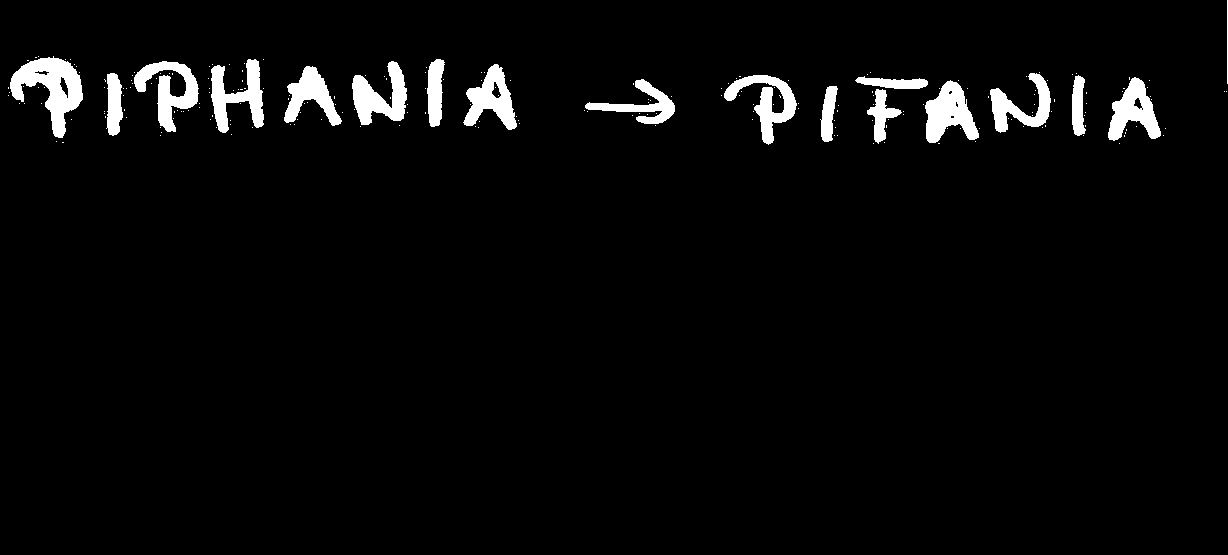 PIPHANIA → PIFANIA